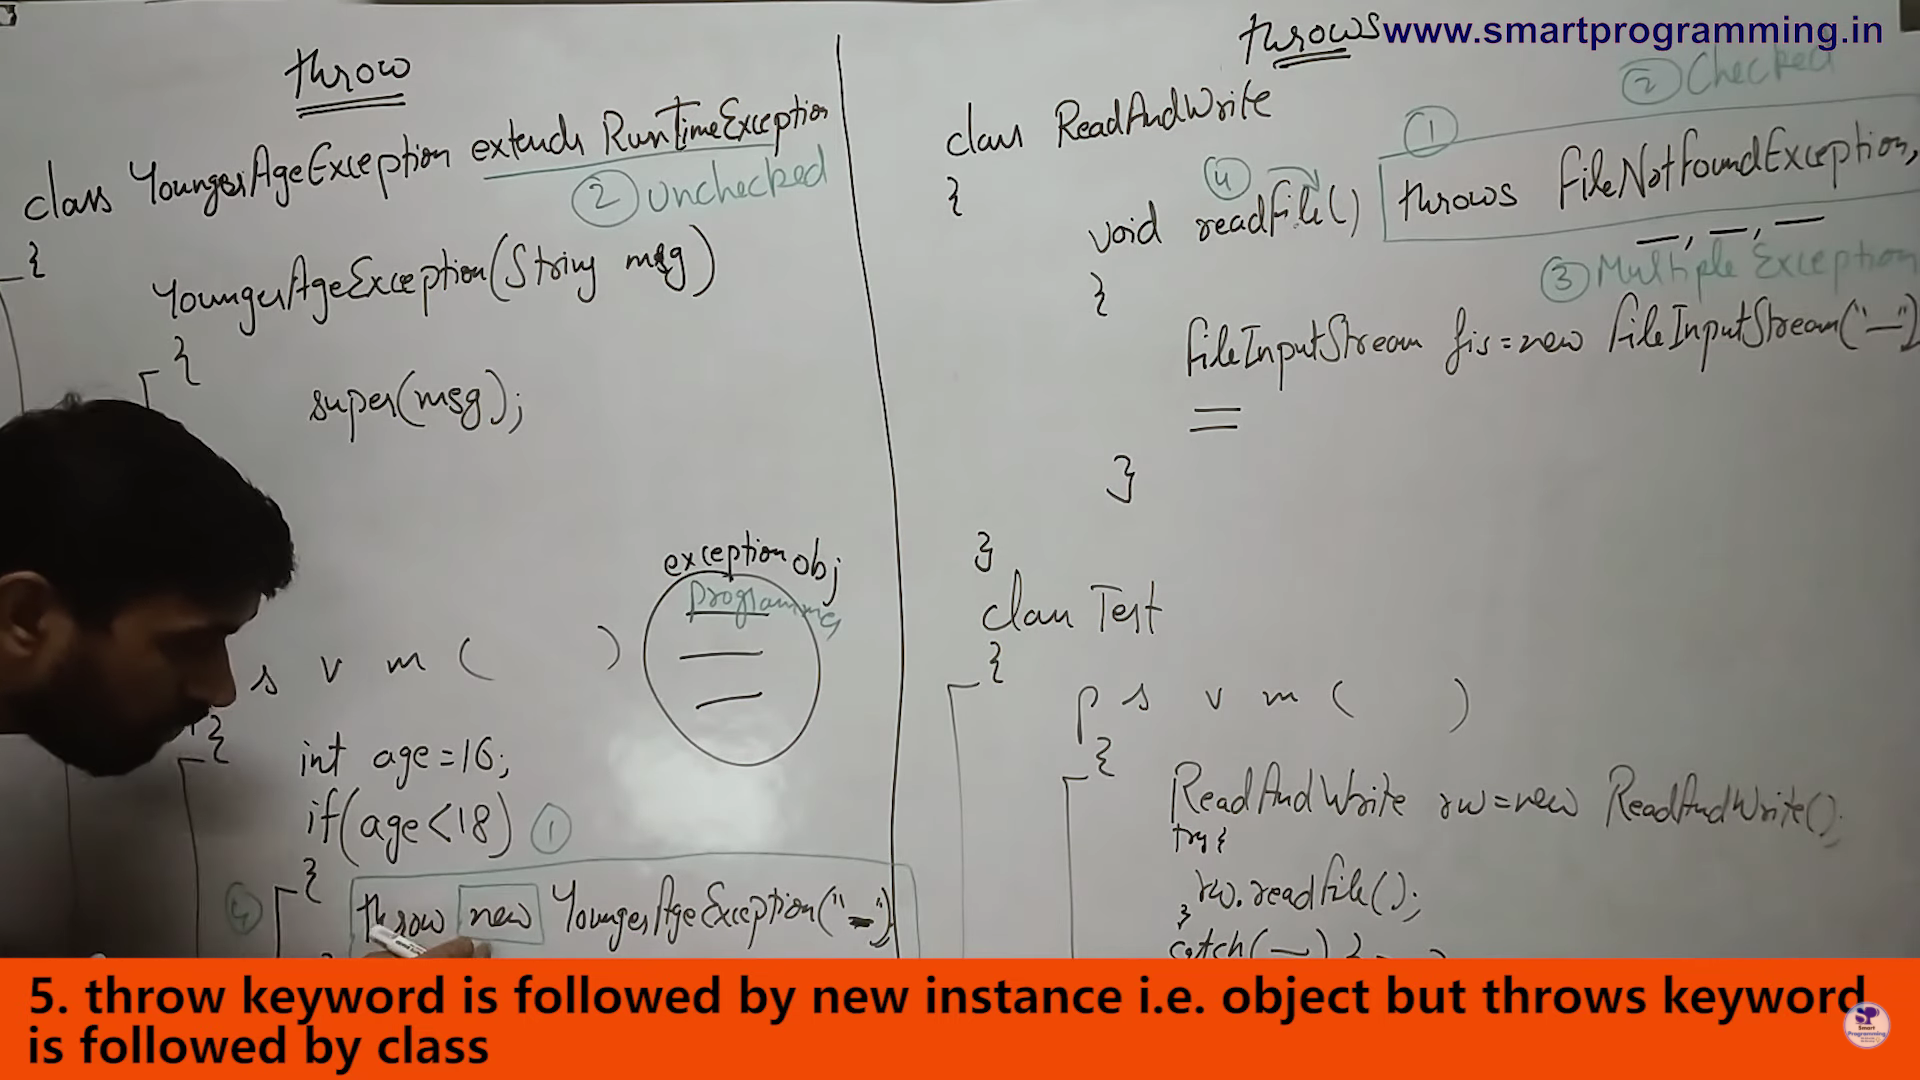 throw
class YoungerAgeException extends RunTimeException
② Unchecked
{
YoungerAgeException(String msg)
{
super(msg);
exception obj
s v m ( )
{
int age=16;
if(age<18) ①
{
throw new YoungerAgeException("—")
throws
www.smartprogramming.in
② Checked
class ReadAndWrite
①
{
④
void readFile() throws FileNotFoundException,
—, —, —
③ Multiple Exception
{
FileInputStream fis=new FileInputStream("—")
}
}
class Test
{
p s v m ( )
{
ReadAndWrite rw=new ReadAndWrite();
try{
rw.readFile();
}
catch(—) {
5. throw keyword is followed by new instance i.e. object but throws keyword
is followed by class
SP
Smart
Programming